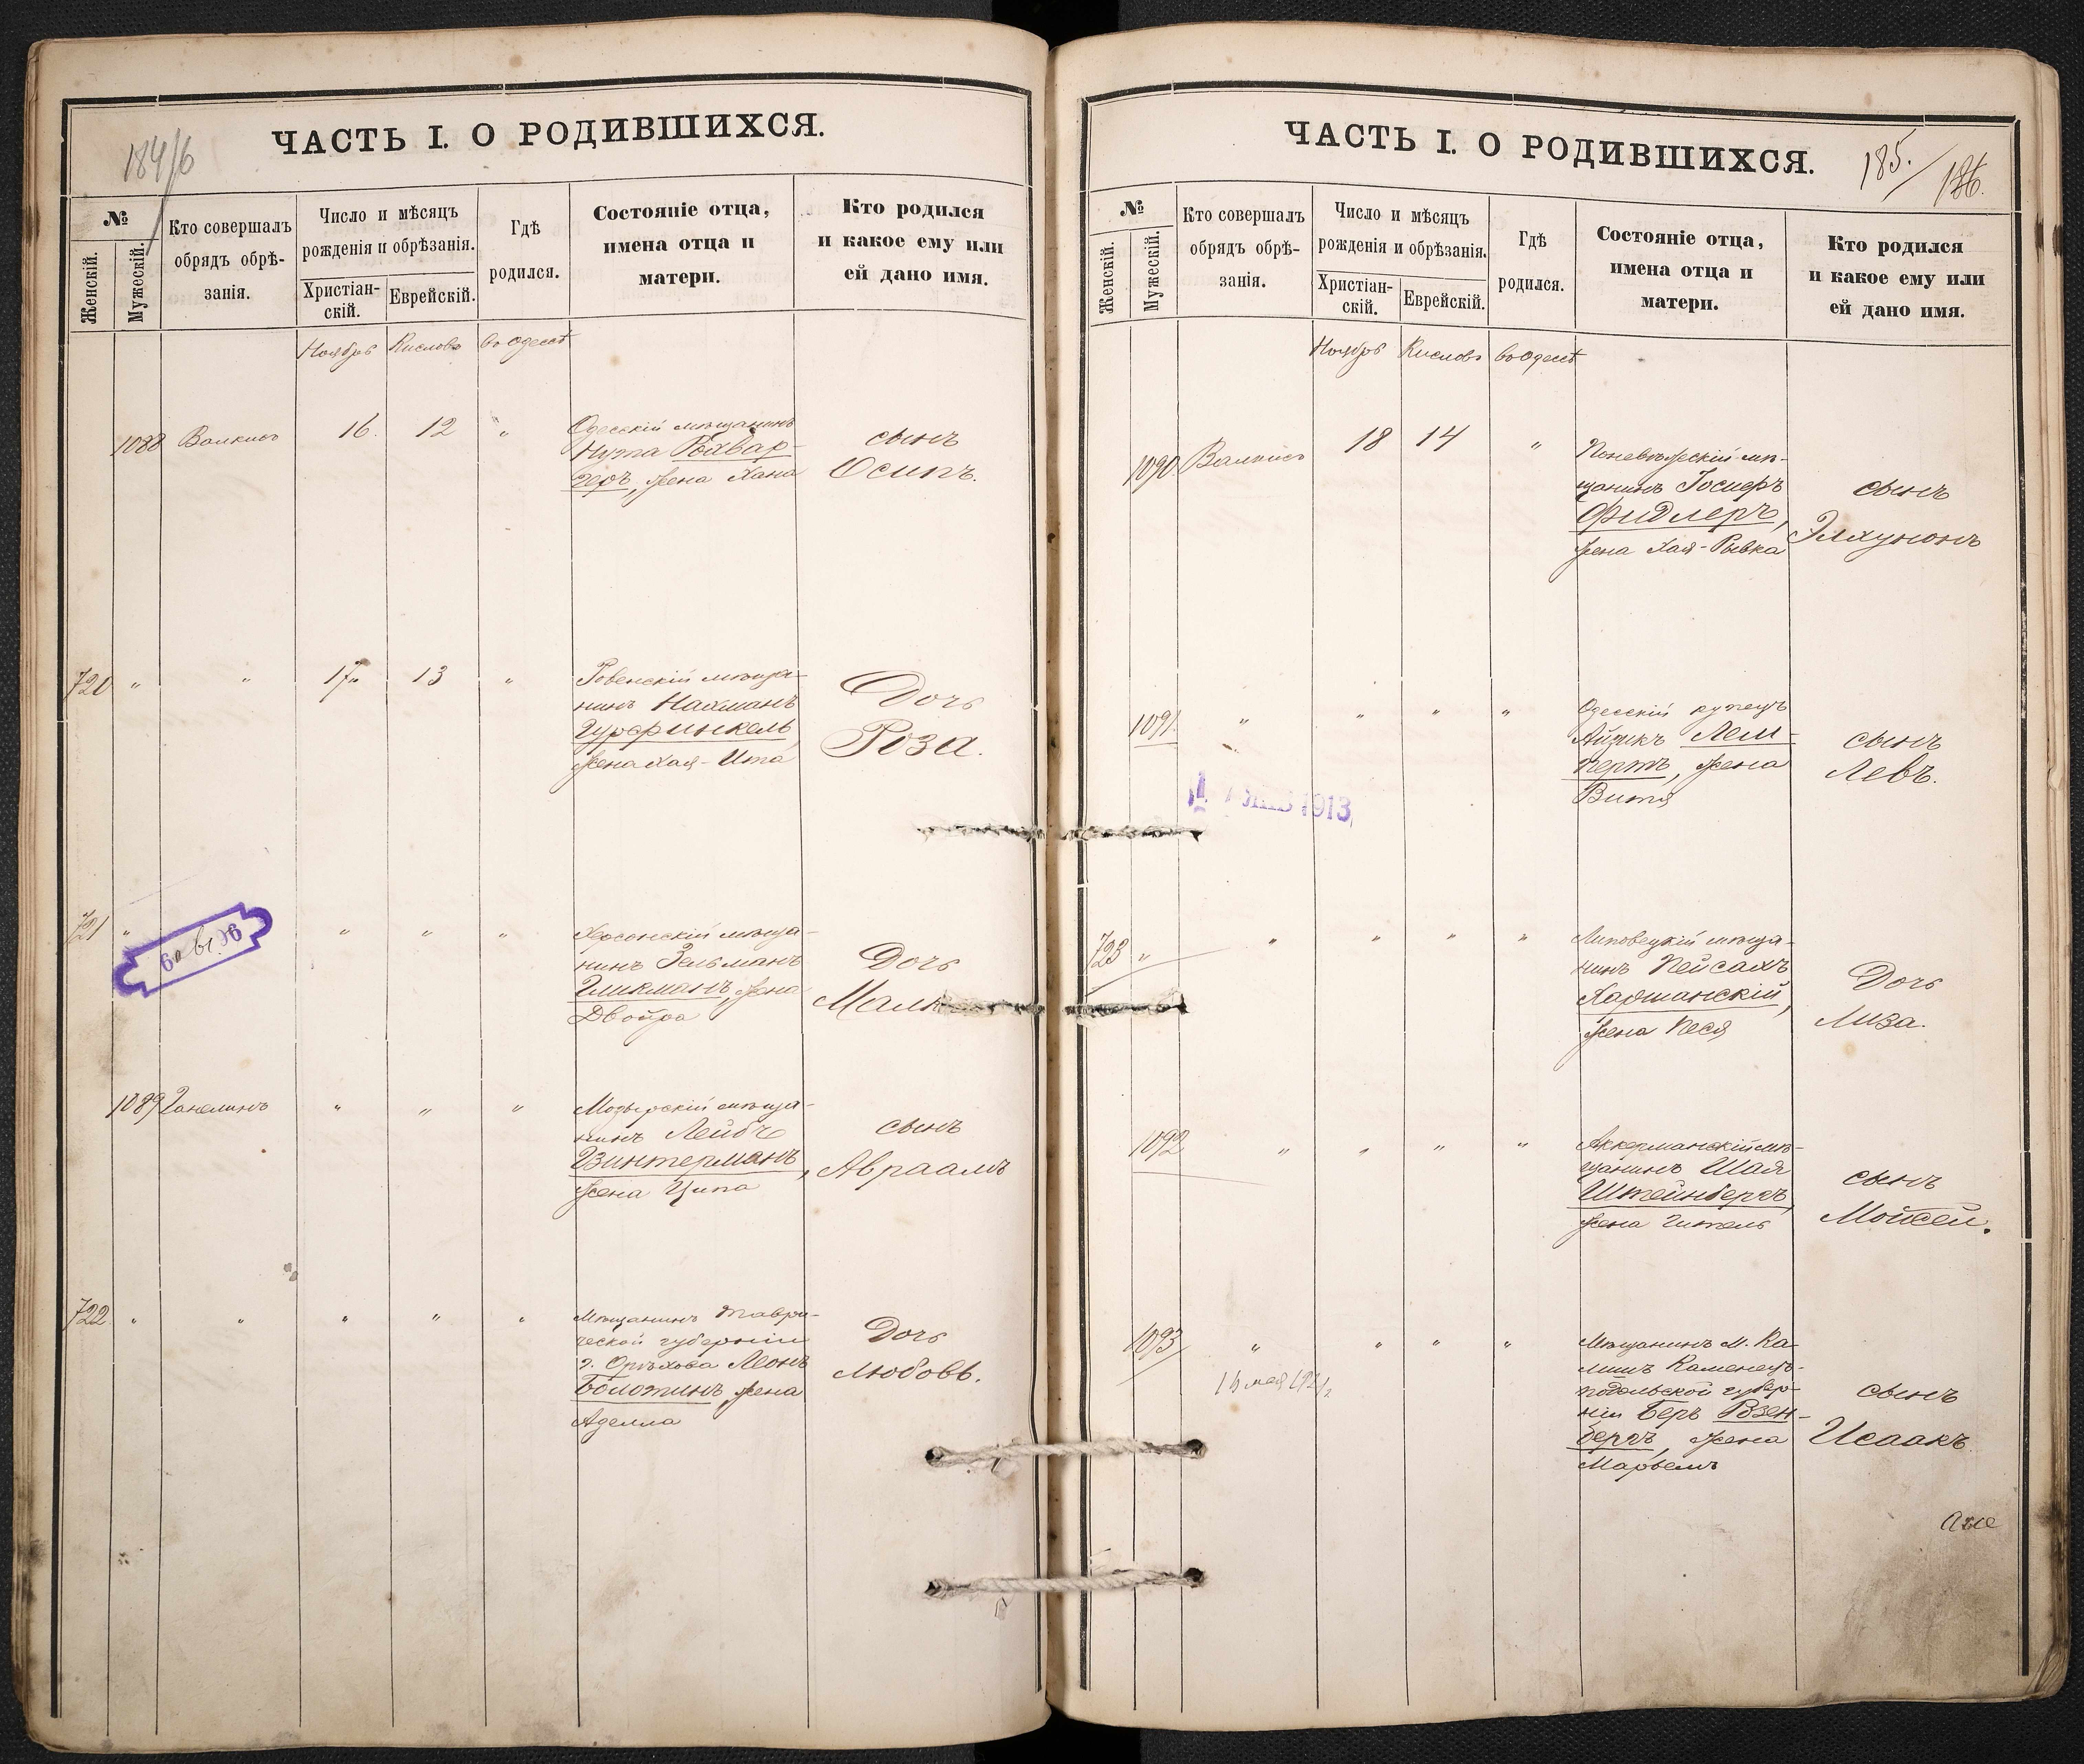 184/6
ЧАСТЬ I. О РОДИВШИХСЯ.
№
Женскій.
Мужескій.
Кто совершалъ
обрядъ обрѣ-
занія.
Число и мѣсяцъ
рожденія и обрѣзанія.
Христіан-
скій.
Еврейскій.
Гдѣ
родился.
Состояніе отца,
имена отца и
матери.
Кто родился
и какое ему или
ей дано имя.
Ноябрь Кислевъ въ Одессѣ
1088 16. 12 "
Одесскій мѣщанинъ
Нута Рохвар-
геръ, жена Хана
сынъ
Осипъ.
720 " " 17 13 "
Ровенскій мѣща-
нинъ Нахманъ
Гурфинкель,
жена Хая-Ита
Дочь
Роза.
721 " " " "
Херсонскій мѣща-
нинъ Зельманъ
Гликманъ, жена
Двойра
Дочь
1089 " " "
Мозырскій мѣща-
нинъ Лейба
Гзинтерманъ,
жена Ципа
сынъ
Авраамъ
722. " " " " "
Мѣщанинъ Таври-
ческой губерніи
г. Орѣхова Леонъ
Болотинъ, жена
Аделла
Дочь
Любовь.
185./186.
ЧАСТЬ I. О РОДИВШИХСЯ.
№
Женскій.
Мужескій.
Кто совершалъ
обрядъ обрѣ-
занія.
Число и мѣсяцъ
рожденія и обрѣзанія.
Христіан-
скій.
Еврейскій.
Гдѣ
родился.
Состояніе отца,
имена отца и
матери.
Кто родился
и какое ему или
ей дано имя.
Ноябрь Кислевъ въ Одессѣ
1090 18 14 "
Поневѣжескій мѣ-
щанинъ Іосифъ
Фидлеръ,
жена Хая-Рывка
сынъ
Элхунонъ
1091. " " " "
Одесскій купецъ
Айзикъ Лем-
пертъ, жена
Витя
сынъ
Левъ.
1913
723 " " " " "
Липовецкій мѣща-
нинъ Пейсахъ
Харшанскій,
жена Песя
Дочь
Лиза.
1092 " " " "
Аккерманскій мѣ-
щанинъ Шая
Штейнбергъ,
жена Гитель
сынъ
Мойсей.
1093 " " " "
Мѣщанинъ м. Ка-
люшъ Каменецъ-
подольской губер-
ніи Беръ Розен-
бергъ, жена
Марьемъ
сынъ
Исаакъ.